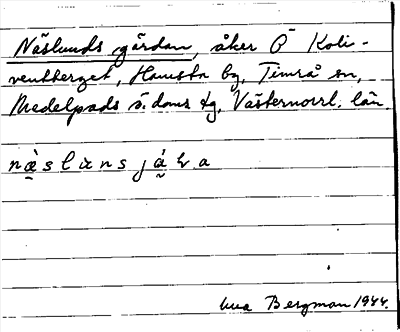 Näslunds gärdan, åker Ö Koli-
ventberget, Hamsta by, Timrå sn,
Medelpads ö. doms tg, Västernorrl. län.
næ̀slʉns já
Bergman 1944.